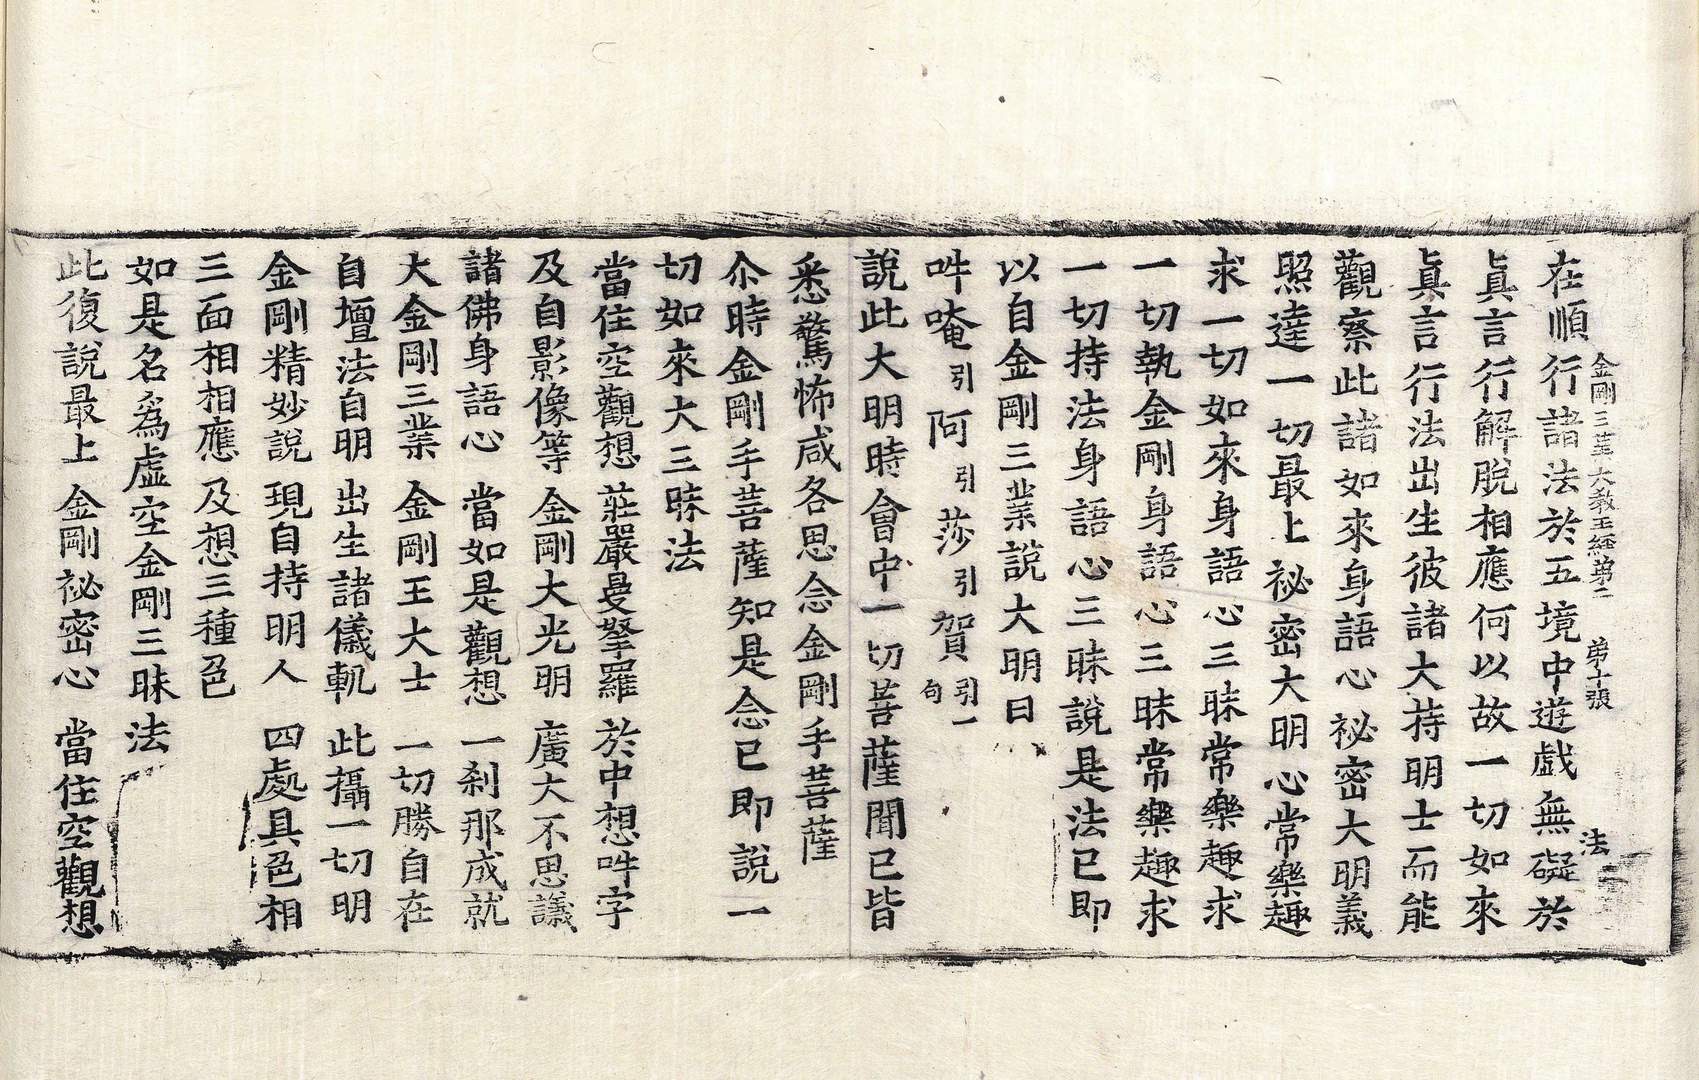 金剛三業大教王經第二 第十張 法
在順行諸法於五境中遊戲無礙於
眞言行解脫相應何以故一切如來
眞言行法出生彼諸大持明士而能
觀察此諸如來身語心祕密大明義
照達一切最上祕密大明心常樂趣
求一切如來身語心三昧常樂趣求
一切執金剛身語心三昧常樂趣求
一切持法身語心三昧說是法已即
以自金剛三業說大明曰
吽唵引阿引莎引賀引一句
說此大明時會中一切菩薩聞已皆
悉驚怖咸各思念金剛手菩薩
尒時金剛手菩薩知是念已即說一
切如來大三昧法
當住空觀想 莊嚴曼拏羅 於中想吽字
及自影像等 金剛大光明 廣大不思議
諸佛身語心 當如是觀想 一刹那成就
大金剛三業 金剛王大士 一切勝自在
自壇法自明 出生諸儀軌 此攝一切明
金剛精妙說 現自持明人 四處具色相
三面相相應 及想三種色
如是名爲虛空金剛三昧法
此復說最上 金剛祕密心 當住空觀想